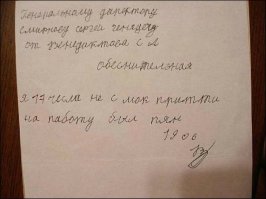 Генеральному директору
смирнову сергей генадечу
от Бенедактова С Л
обеснительная
я 17 чесла не с мок притти
на работу был пян
19 06